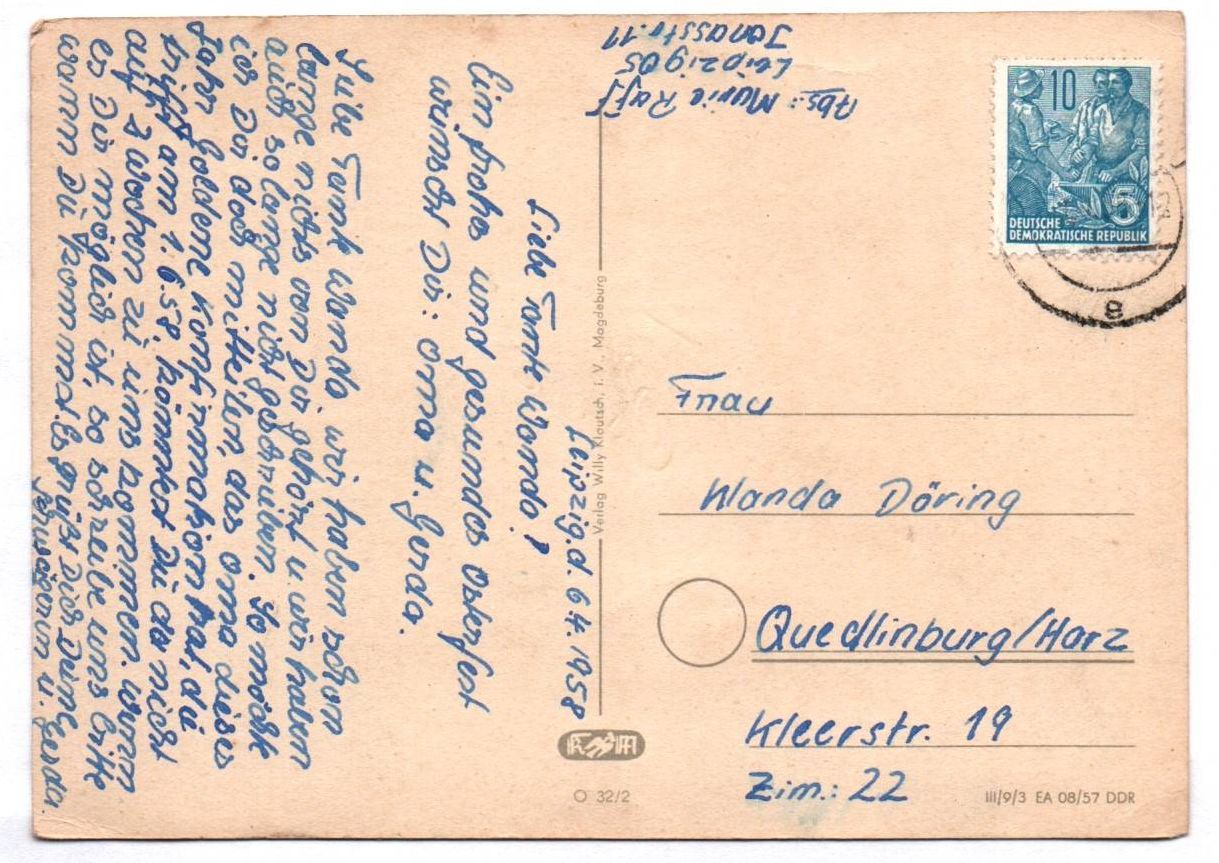 Leipzig d. 6.4.1958
Liebe Tante Wanda!
Ein frohes und gesundes Osterfest
wünscht Dir: Oma u. Gerda.
Liebe Tante Wanda, wir haben schon
lange nichts von Dir gehört u. wir haben
auch so lange nicht geschrieben. So möcht
ich Dir doch mitteilen, das Oma dieses
Jahr Goldene Konfirmation hat, die
trifft am 1.6.58, könntest Du da nicht
auf 2 Wochen zu uns kommen. Wenn
es Dir möglich ist, so schreibe uns bitte
wann Du kommst. Es grüßt Dich Deine
Schwägerin u. Gerda.
Abs.: Marie Raff
Leipzig O5
Jonasstr. 11
10
5
DEUTSCHE
DEMOKRATISCHE REPUBLIK
e
Frau
Wanda Döring
Quedlinburg/Harz
Kleerstr. 19
Zim.: 22
Verlag Willy Klautsch, i. V., Magdeburg
O 32/2
III/9/3 EA 08/57 DDR